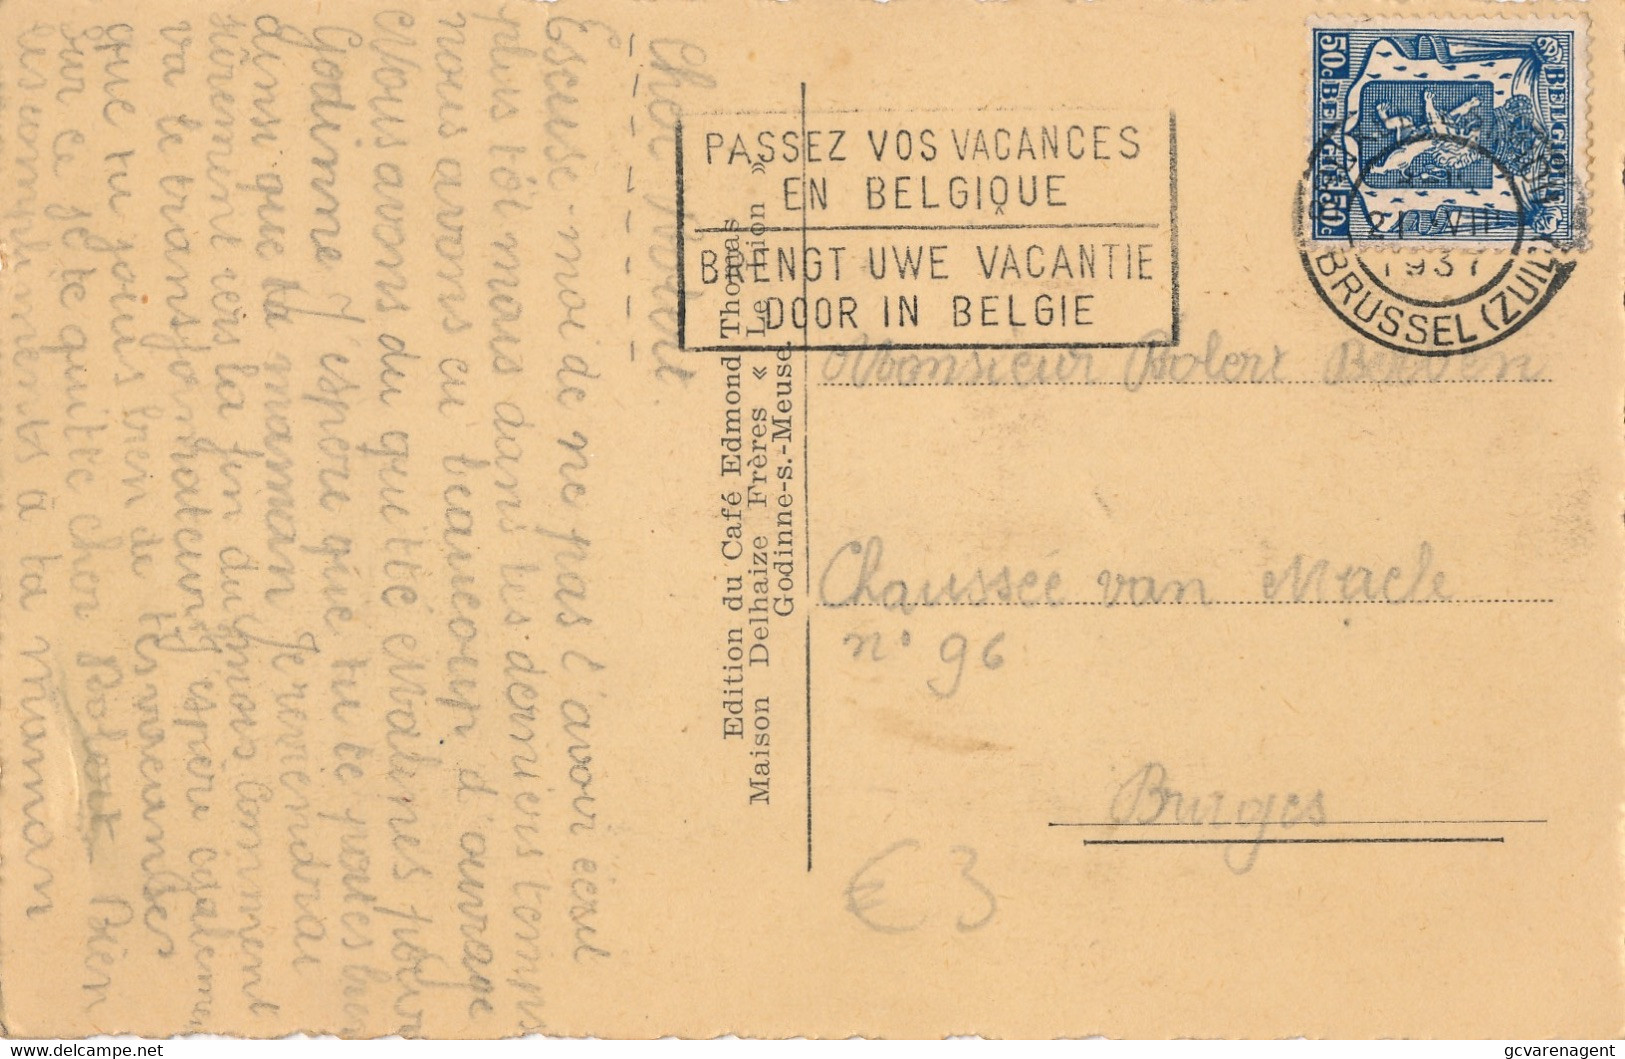 Cher Robert.
Excuse-moi de ne pas l'avoir écrit
plus tôt mais dans les derniers temps
nous avons eu beaucoup d'ouvrage
Nous avons du quitté Malines pour
Godinne J'espere que tu te portes bien
dinsi que ta maman Je reviendrai
sûrement vers la fin du mois, Comment
va le transformateur? J'espère égalemen
que tu jouis bien de tes vacances
Sur ce je te quitte cher Robert Bien
des compliments à ta maman
Edition du Café Edmond Thomas
Maison Delhaize Frères « Le Lion »
Godinne-s.-Meuse.
PASSEZ VOS VACANCES
EN BELGIQUE
BRENGT UWE VACANTIE
DOOR IN BELGIE
BELGIQUE
50c BELGIE 50c
21 VIII
1937
BRUSSEL (ZUID)
Monsieur Robert
Chaussée van Macle
n° 96
Bruges
€ 3
delcampe.net
gcvarenagent